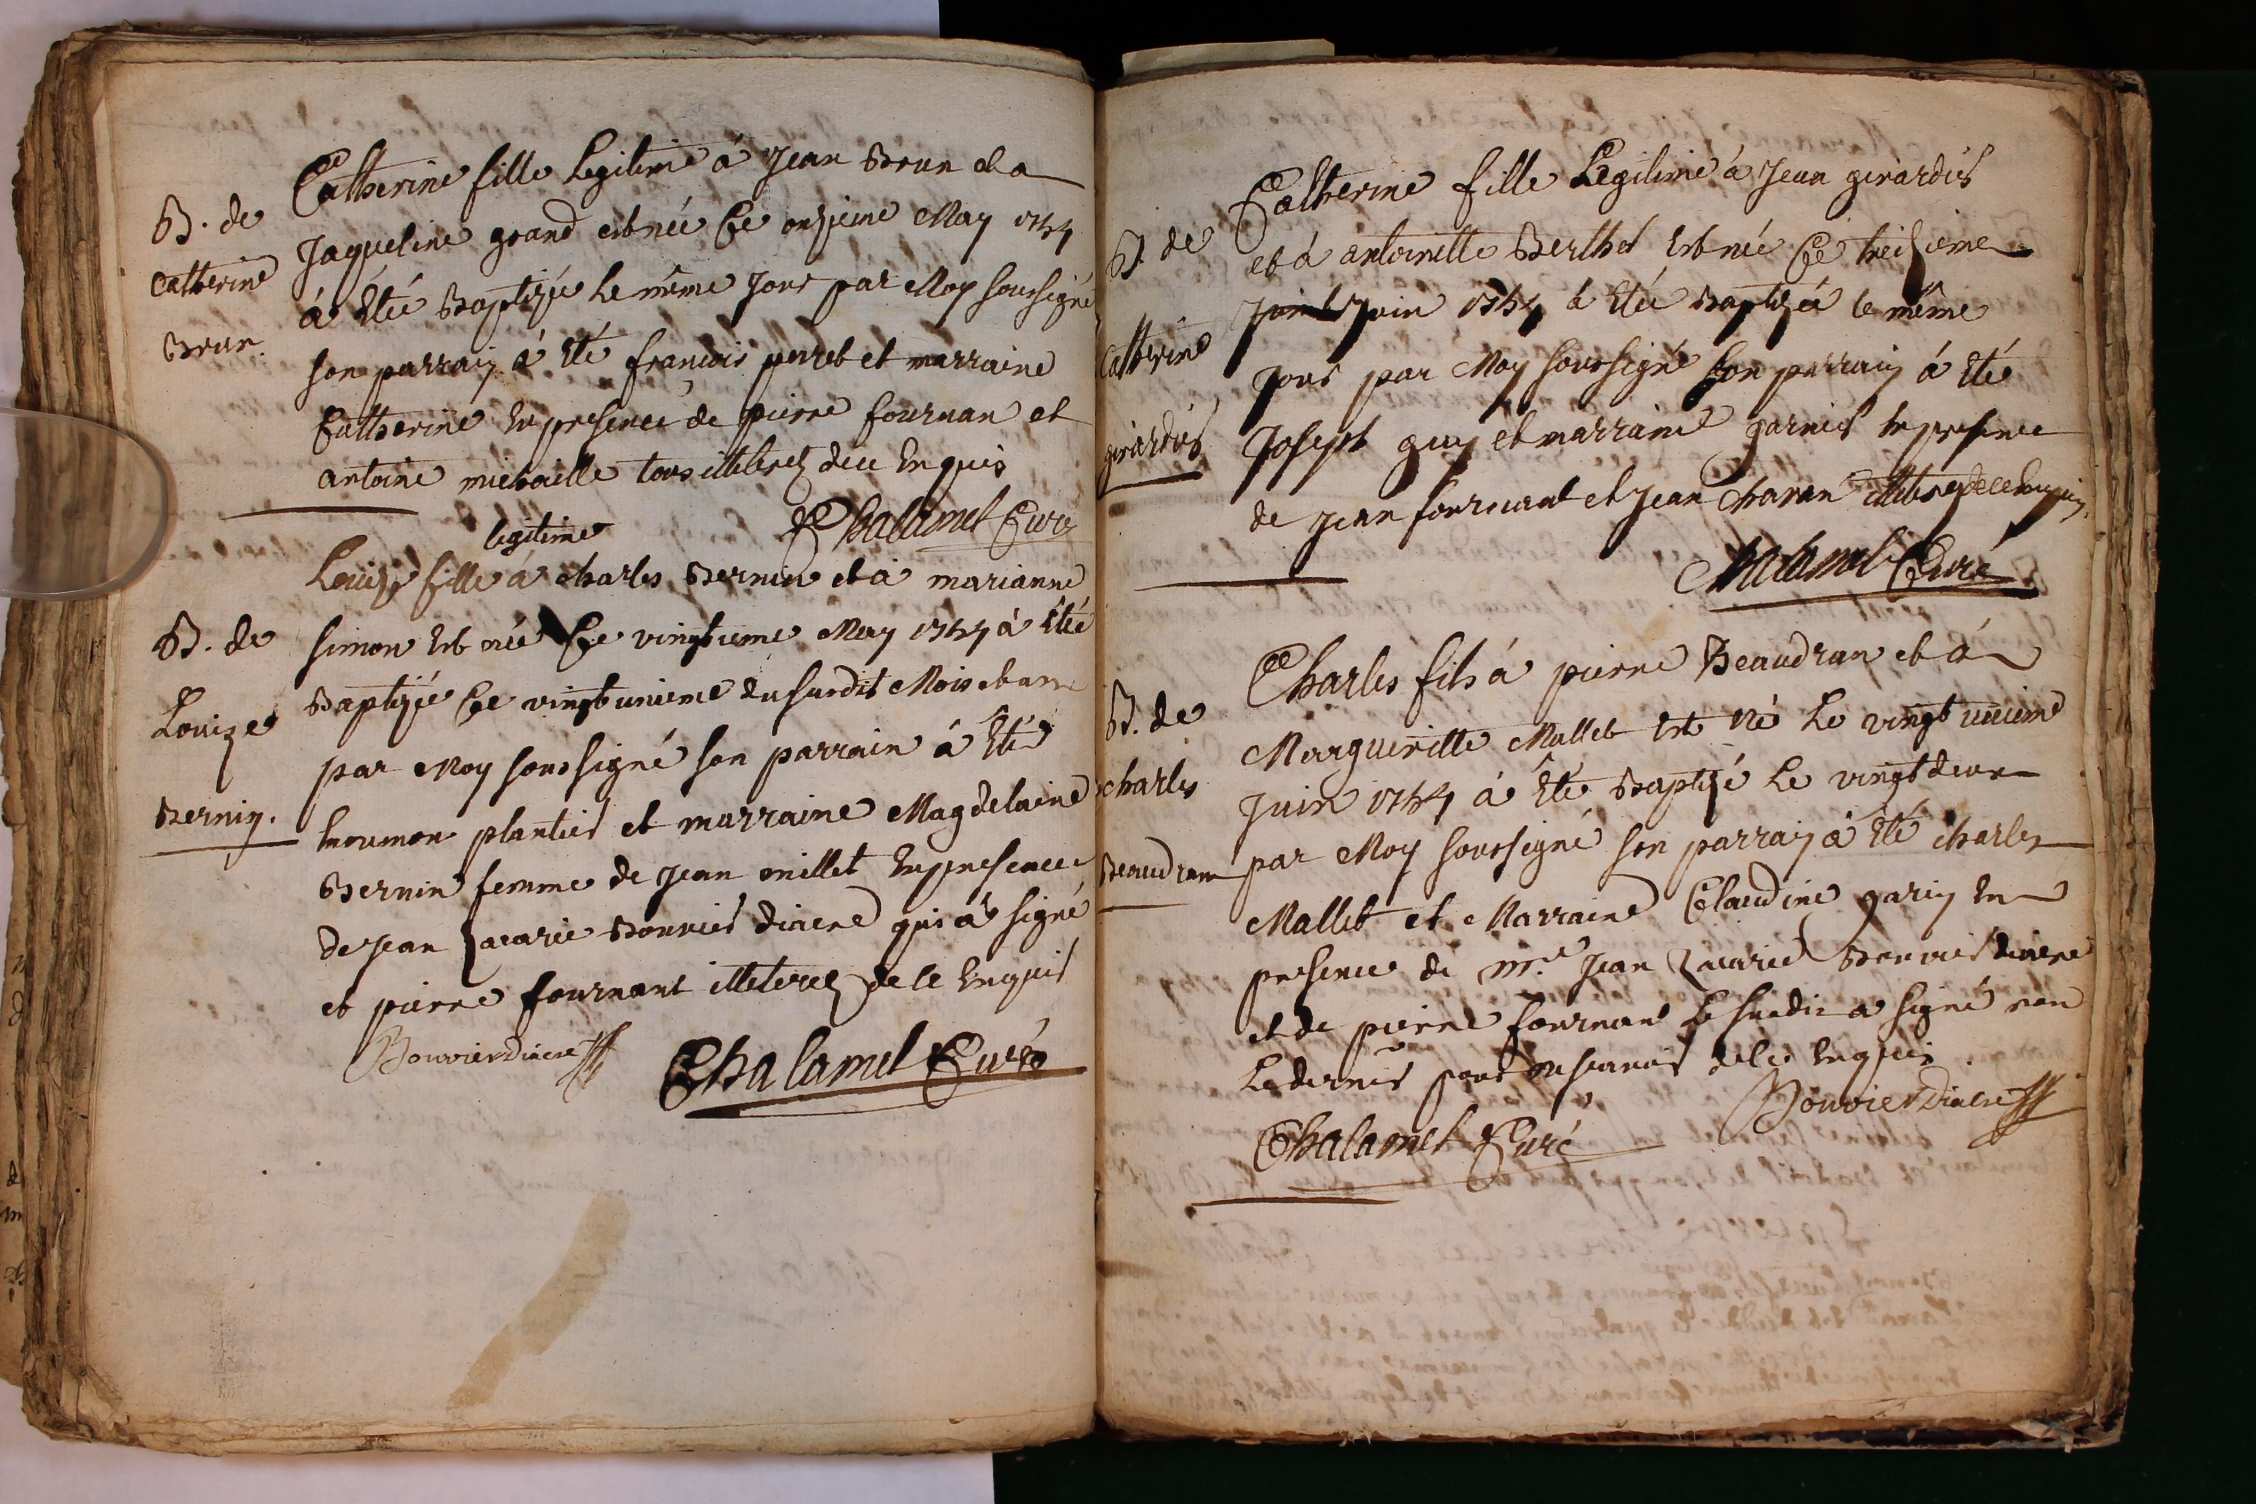 B. de
Catherine
Brun.
Catherine fille Legitime á Jean Brun et a
Jaqueline grand est née Ce onzieme May 1744
á Eté Baptizée Le même Jour par Moy soussigné
son parrain á Eté francois perret et marraine
Catherine En presence de pierre fournan et
antoine michaille tous illiterez dece Enquis
Chalamel Curé
B. de
Louize
Bernin.
legitime
Louize fille á charles Bernin et á marianne
simon Est née Ce vingtieme May 1744 á Eté
Baptizée Ce vingt unieme du susdit Mois et an
par Moy soussigné son parrain á Eté
plantier et marraine Magdelaine
Bernin femme de Jean millet En presence
de Jean Zacarie Bouvier diacre qui á signé
et pierre fournant illiterez de ce Enquis
Bouvier diacre
Chalamel Curé
B. de
Catherine
girardis
Catherine fille Legitime á Jean girardis
et á antoinette Berthet Est née Ce treizieme
Juin 1744 á Eté Baptizée le même
Jour par Moy soussigné son parrain á Eté
Joseph guy et marraine garnier En presence
de Jean fournant et Jean Charan illiterez de ce Enquis.
Chalamel Curé
B. de
charles
Beaudran
Charles fils á pierre Beaudran et á
Margueritte Mallet Est Né Le vingt unieme
Juin 1744 á Eté Baptizé Le vingt deux
par Moy soussigné son parrain á Eté charles
Mallet et Marraine Claudine garin En
presence de mre Jean Zacarie Bouvier diacre
et de pierre fournant Le susdit a signé non
Le dernier pour ne scavoir de ce Enquis
Bouvier diacre
Chalamel Curé